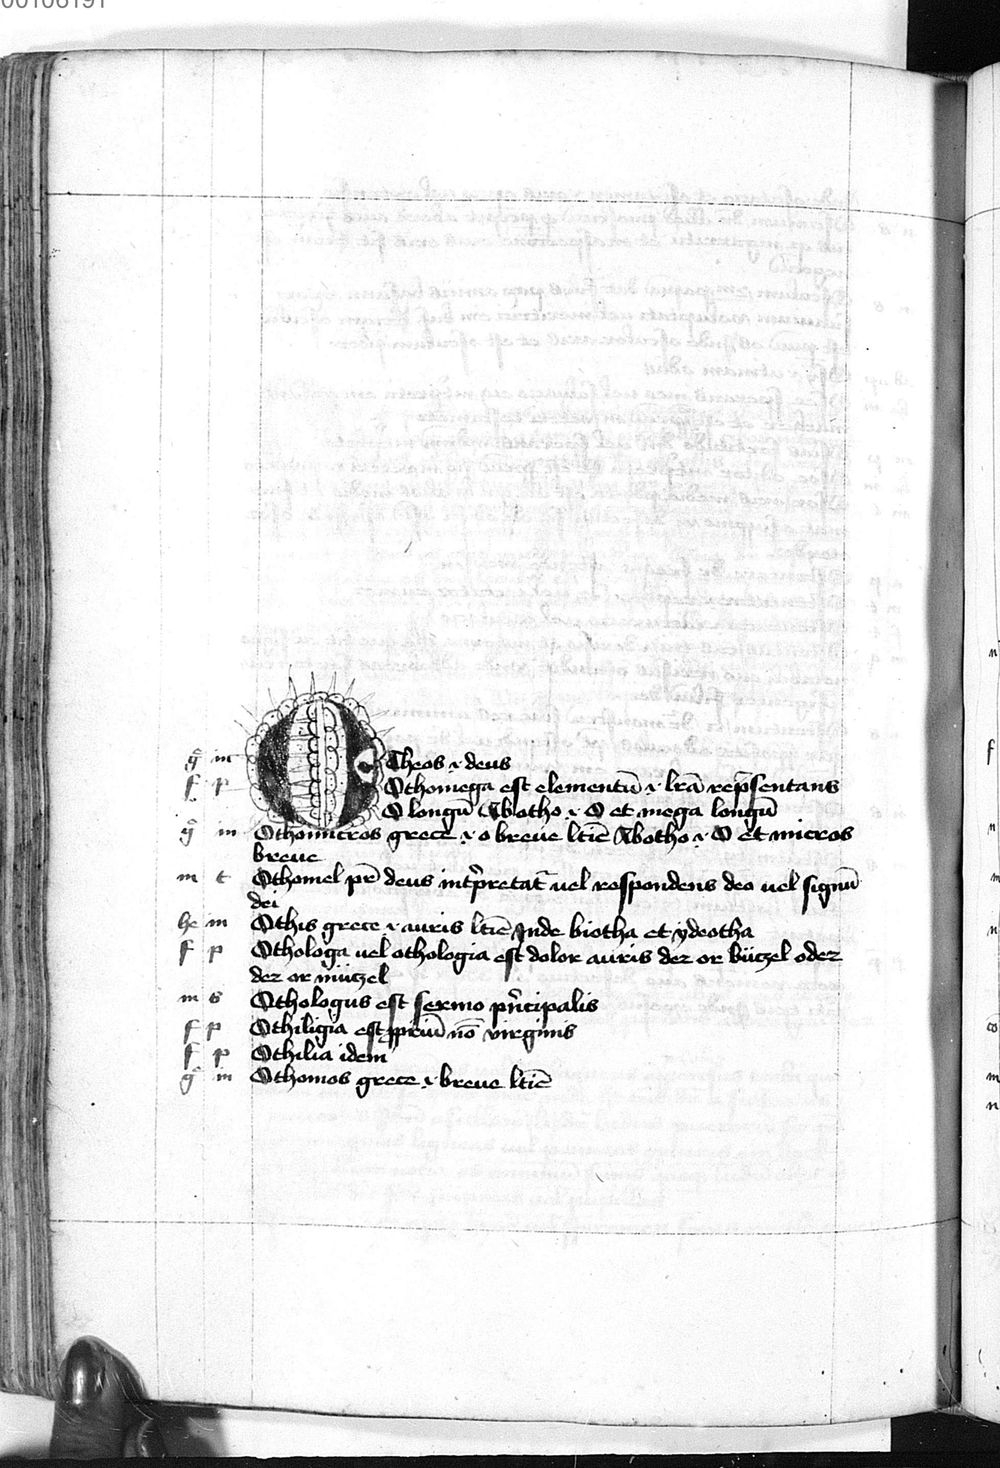 00106191
g̃ m Otheos .i. deus
f p Othomega est elementū .i. lr̄a rep̄sentans
O longū Ab otho .i. O et mega longū
g̃ m Othomicros grece .i. o breue lt̄ie Ab otho .i. O et micros
breue
m t Othomel pr̄ deus int̄pretat̄ uel respondens deo uel signū
dei
he m Othis grece .i. auris lt̄ie Inde biotha et ydeotha
f p Othologa uel othologia est dolor auris der or bützel oder
der or mützel
m s Othologus est sermo pn̄cipalis
f p Othiligia est ꝓpriū nō virginis
f p Othilia idem
g̃ m Othomos grece .i. breue lt̄ie